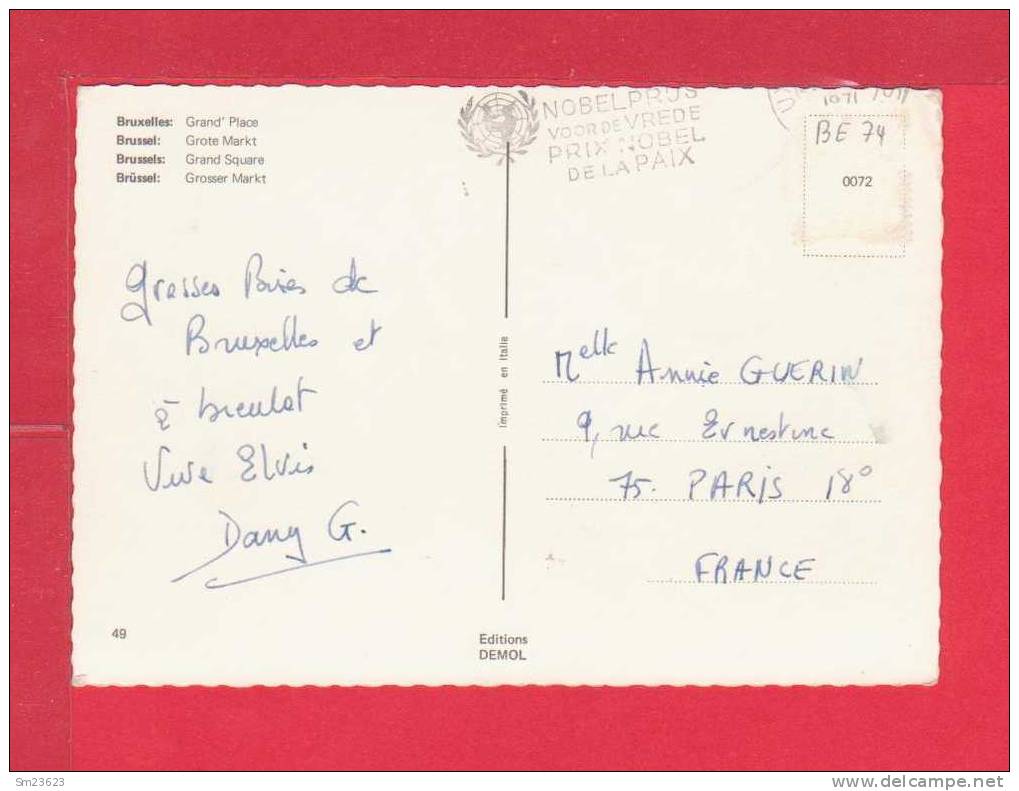 Bruxelles: Grand' Place
Brussel: Grote Markt
Brussels: Grand Square
Brüssel: Grosser Markt
NOBELPRIJS
VOOR DE VREDE
PRIX NOBEL
DE LA PAIX
BE 74
0072
Grosses Bises de
Bruxelles et
à bientot
Vive Elvis
Dany G.
imprimé en Italie
Melle Annie GUERIN
9, rue Ernestine
75. PARIS 18°
FRANCE
49
Editions
DEMOL
Sm23623
www.delcampe.net